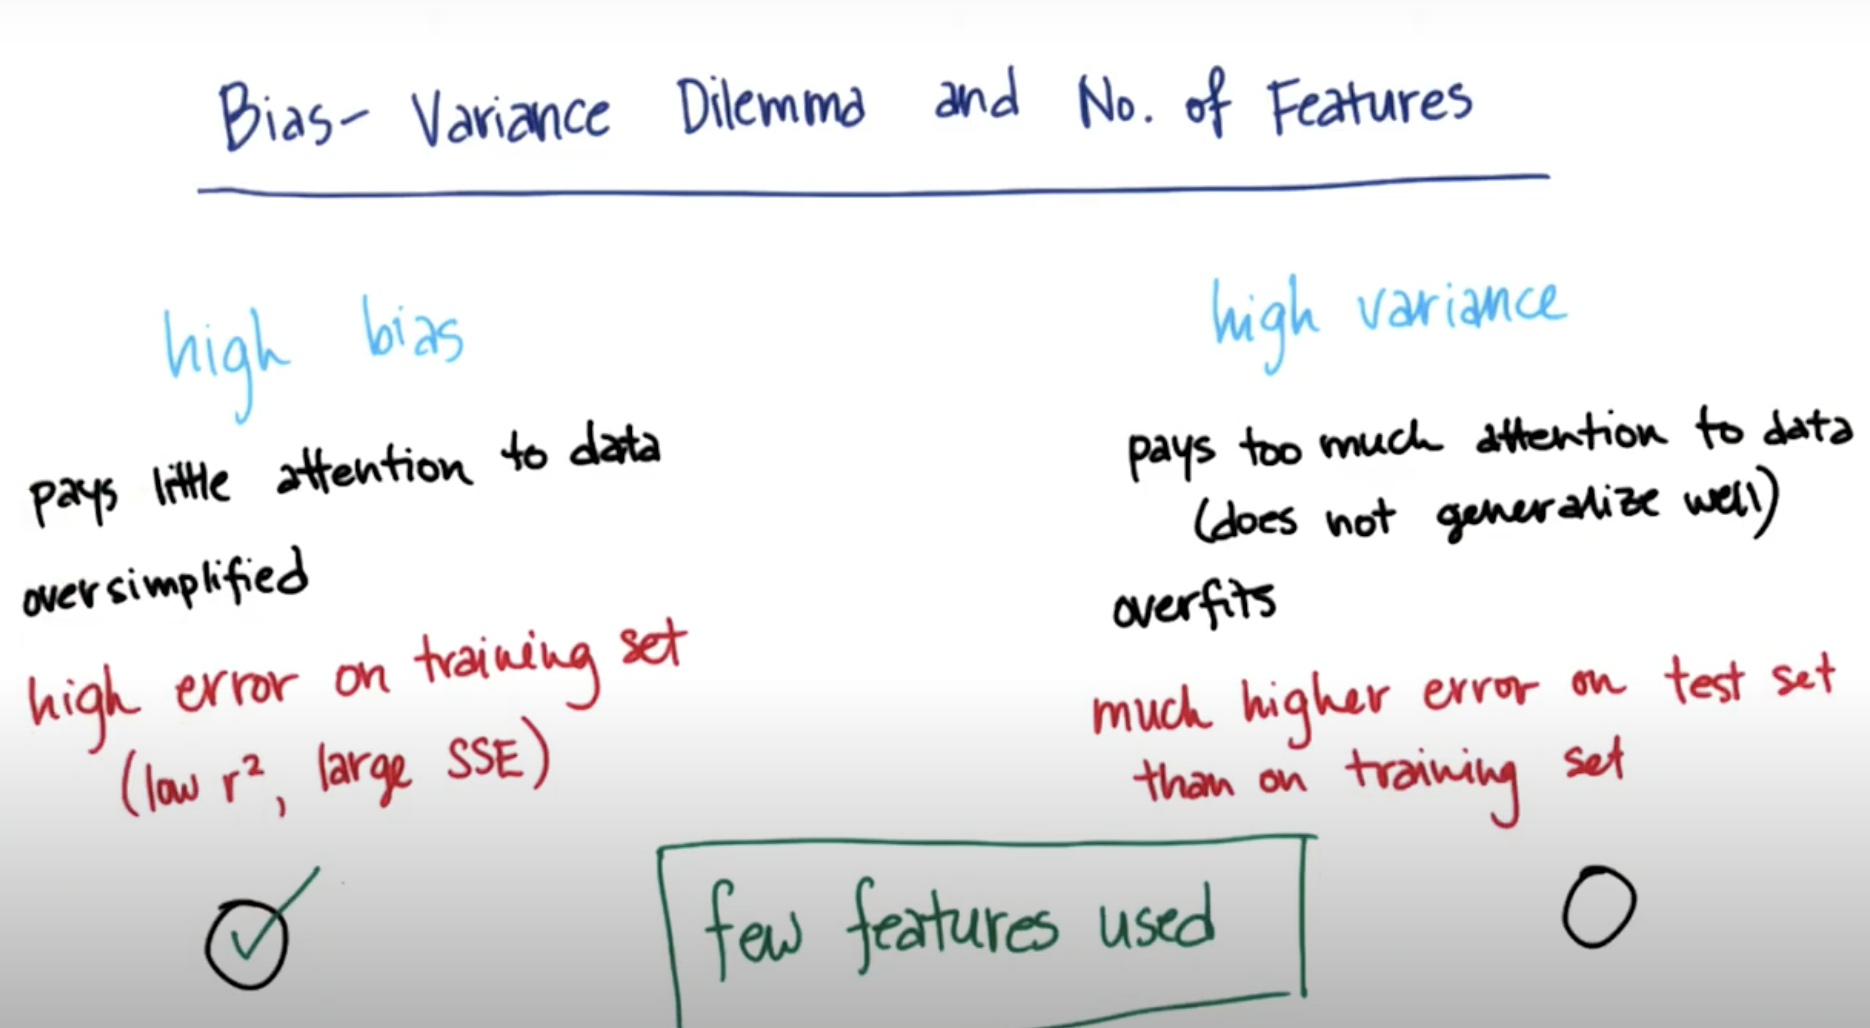 Bias- Variance Dilemma and No. of Features
high bias
pays little attention to data
oversimplified
high error on training set
(low r², large SSE)
high variance
pays too much attention to data
(does not generalize well)
overfits
much higher error on test set
than on training set
few features used